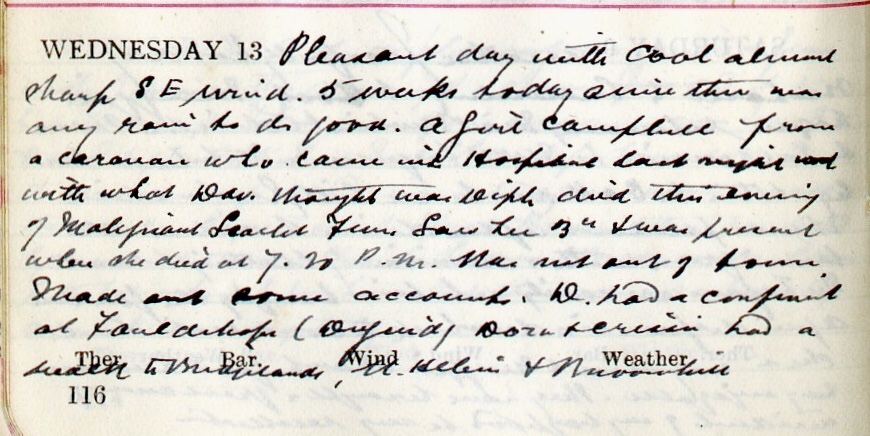 WEDNESDAY 13 Pleasant day with cool almost
sharp S E wind. 5 weeks today since there was
any rain to do good. A girl Campbell from
a caravan who came into Hospital last night
with what Dav. thought was Diph died this evening
of Malignant Scarlet Fever Saw her & was present
when she died at 7.20 P.M. Was not out of town
Made out some accounts. D. had a confinmt
at Fauldshope (Duguid) Dora & had a
Ther. Bar. Wind Weather
to St. Helens & Broomhill
116